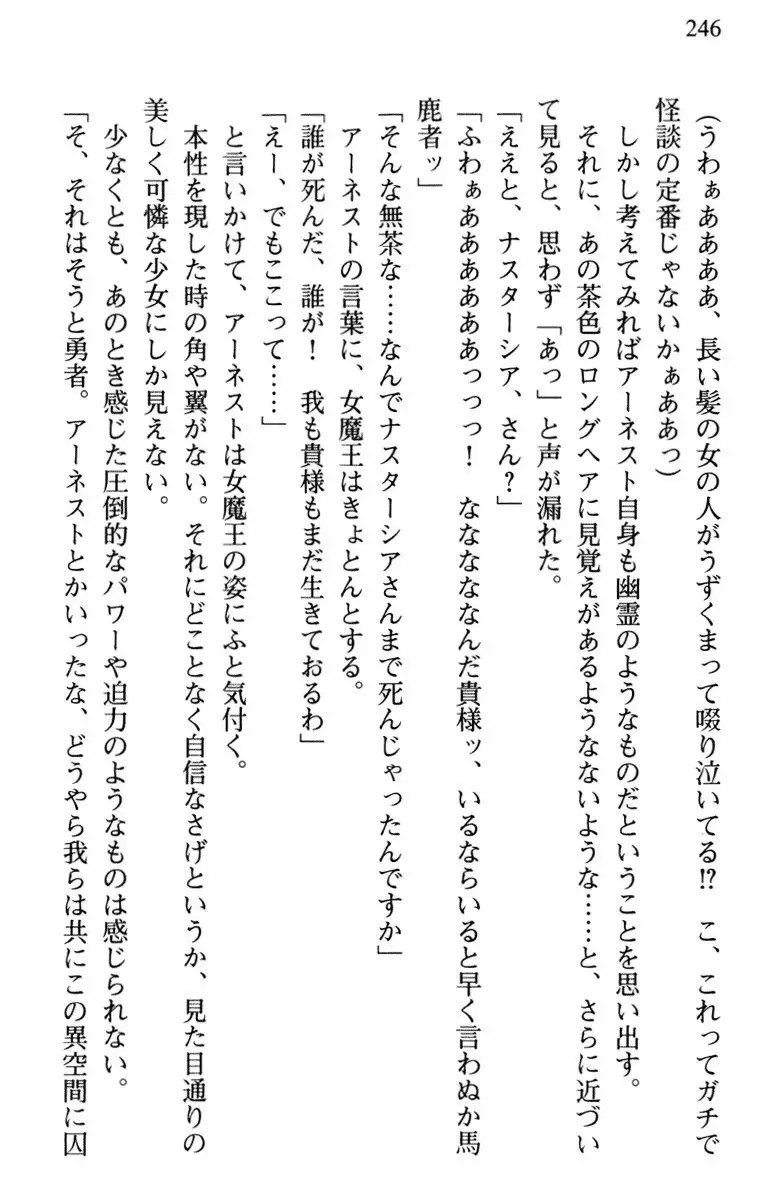 246
(うわぁあああ、長い髪の女の人がうずくまって啜り泣いてる!? こ、これってガチで
怪談の定番じゃないかぁああっ)
しかし考えてみればアーネスト自身も幽霊のようなものだということを思い出す。
それに、あの茶色のロングヘアに見覚えがあるようなないような……と、さらに近づい
て見ると、思わず「あっ」と声が漏れた。
「ええと、ナスターシア、さん?」
「ふわぁああああああっっっ! なななななんだ貴様ッ、いるならいると早く言わぬか馬
鹿者ッ」
「そんな無茶な……なんでナスターシアさんまで死んじゃったんですか」
アーネストの言葉に、女魔王はきょとんとする。
「誰が死んだ、誰が! 我も貴様もまだ生きておるわ」
「えー、でもここって……」
と言いかけて、アーネストは女魔王の姿にふと気付く。
本性を現した時の角や翼がない。それにどことなく自信なさげというか、見た目通りの
美しく可憐な少女にしか見えない。
少なくとも、あのとき感じた圧倒的なパワーや迫力のようなものは感じられない。
「そ、それはそうと勇者。アーネストとかいったな、どうやら我らは共にこの異空間に囚